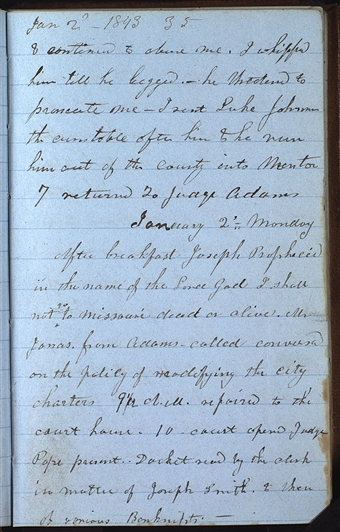 Jan 2d - 1843 35
& continued to abuse me. I whipped
him till he begged. - he threatend to
prosecute me - I sent Luke Johnson
the constable after him & he run
him out of the county into Mentor
7 returned to Judge Adams
January 2d. Monday
After breakfast Joseph Prophecied
in the name of the Lord God I shall
not go to Missouri dead or alive. Mr
Jonas. from Adams. called conversed
on the policy of modifying the city
charters 9½ A.M. repaired to the
court house. 10 court opend Judge
Pope present. Docket read by the clerk
in matter of Joseph Smith. & then
of various Bankrupts. -